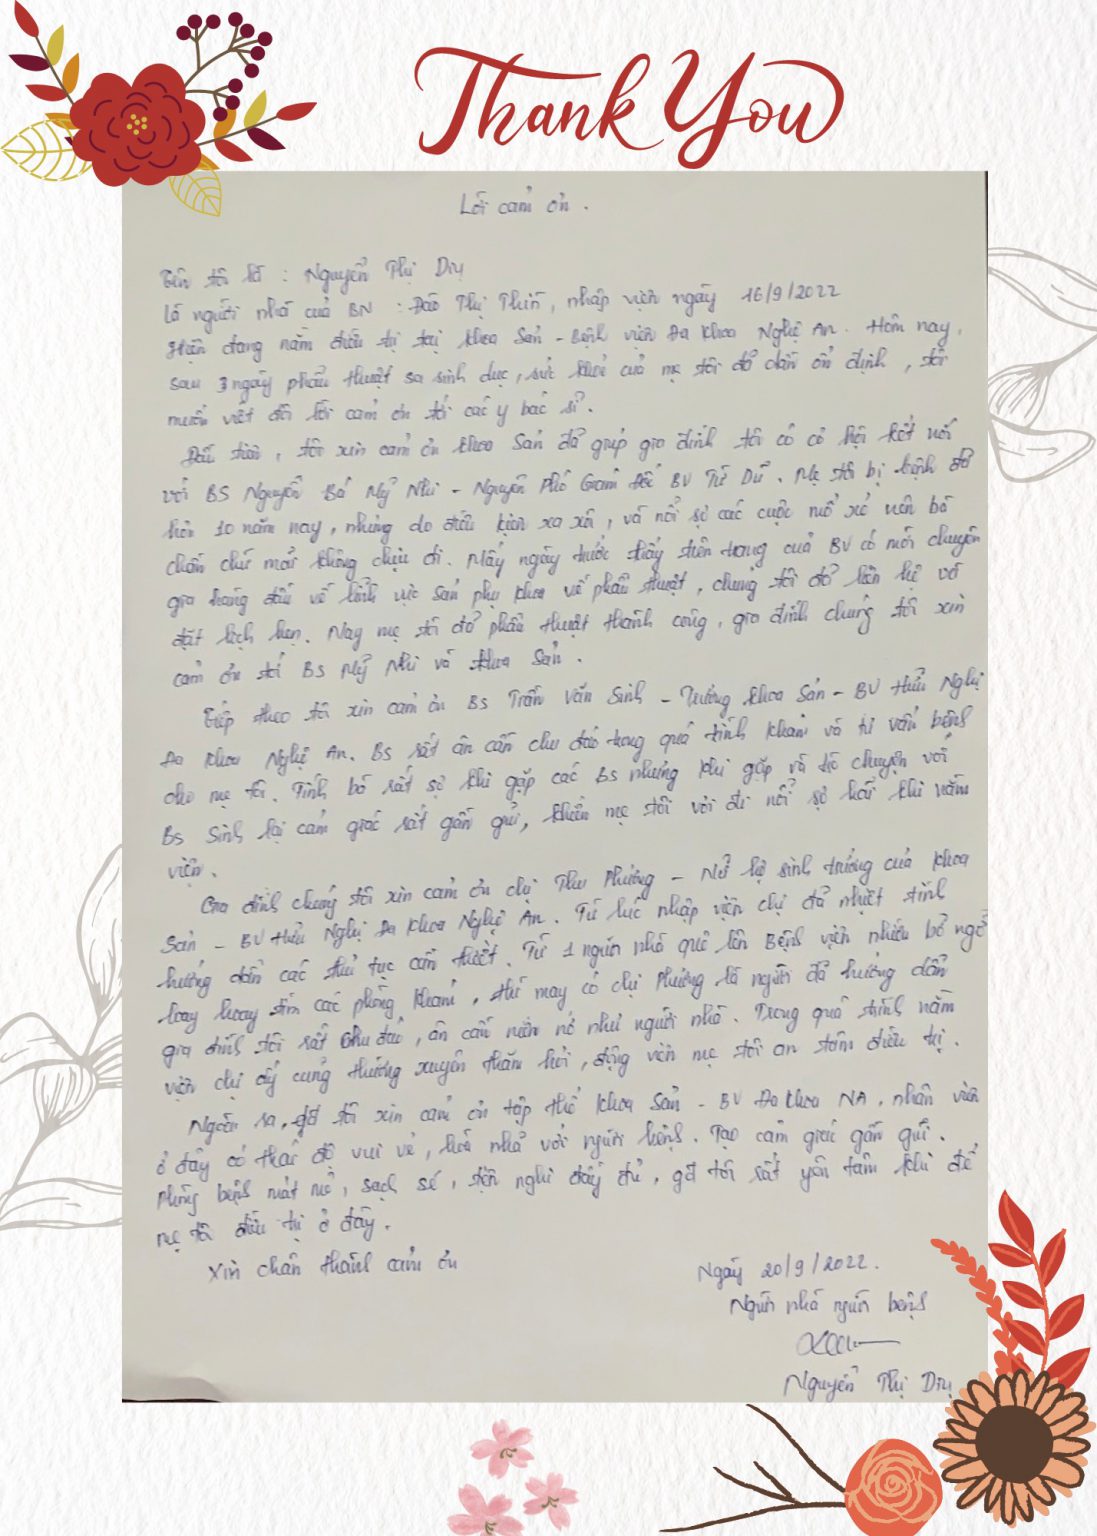 Thank You
Lời cảm ơn.
Tên tôi là : Nguyễn Thị Dịu
Là người nhà của BN : Đào Thị Thìn, nhập viện ngày 16/9/2022
Hiện đang nằm điều trị tại khoa Sản - Bệnh viện Đa khoa Nghệ An. Hôm nay,
sau 3 ngày phẫu thuật sa sinh dục, sức khoẻ của mẹ tôi đã dần ổn định, tôi
muốn viết đôi lời cảm ơn tới các y bác sĩ.
Đầu tiên, tôi xin cảm ơn khoa Sản đã giúp gia đình tôi có cơ hội kết nối
với BS Nguyễn Bá Mỹ Nhi - Nguyên Phó Giám Đốc BV Từ Dũ. Mẹ tôi bị bệnh đã
hơn 10 năm nay, nhưng do điều kiện xa xôi, và nỗi sợ các cuộc mổ xẻ nên bà
chần chừ mãi không chịu đi. Mấy ngày trước thấy trên trang của BV có mời chuyên
gia hàng đầu về lĩnh vực sản phụ khoa về phẫu thuật, chúng tôi đã liên hệ và
đặt lịch hẹn. Nay mẹ tôi đã phẫu thuật thành công, gia đình chúng tôi xin
cảm ơn tới BS Mỹ Nhi và khoa Sản.
Tiếp theo tôi xin cảm ơn Bs Trần Văn Sinh - Trưởng khoa Sản - BV Hữu Nghị
Đa khoa Nghệ An. Bs rất ân cần chu đáo trong quá trình khám và tư vấn bệnh
cho mẹ tôi. Tính bà rất sợ khi gặp các Bs nhưng khi gặp và trò chuyện với
Bs Sinh lại cảm giác rất gần gũi, khiến mẹ tôi vơi đi nỗi sợ hãi khi nằm
viện.
Gia đình chúng tôi xin cảm ơn chị Thu Phương - Nữ hộ sinh trưởng của khoa
Sản - BV Hữu Nghị Đa khoa Nghệ An. Từ lúc nhập viện chị đã nhiệt tình
hướng dẫn các thủ tục cần thiết. Từ 1 người nhà quê lên Bệnh viện nhiều bỡ ngỡ
loay hoay tìm các phòng khám, thì may có chị Phương là người đã hướng dẫn
gia đình tôi rất chu đáo, ân cần niềm nở như người nhà. Trong quá trình nằm
viện chị ấy cũng thường xuyên thăm hỏi, động viên mẹ tôi an tâm điều trị.
Ngoài ra, gđ tôi xin cảm ơn tập thể khoa Sản - BV Đa khoa NA, nhân viên
ở đây có thái độ vui vẻ, hoà nhã với người bệnh. Tạo cảm giác gần gũi.
Phòng bệnh mát mẻ, sạch sẽ, tiện nghi đầy đủ, gđ tôi rất yên tâm khi để
mẹ tôi điều trị ở đây.
Xin chân thành cảm ơn
Ngày 20/9/2022.
Người nhà người bệnh
Nguyễn Thị Dịu